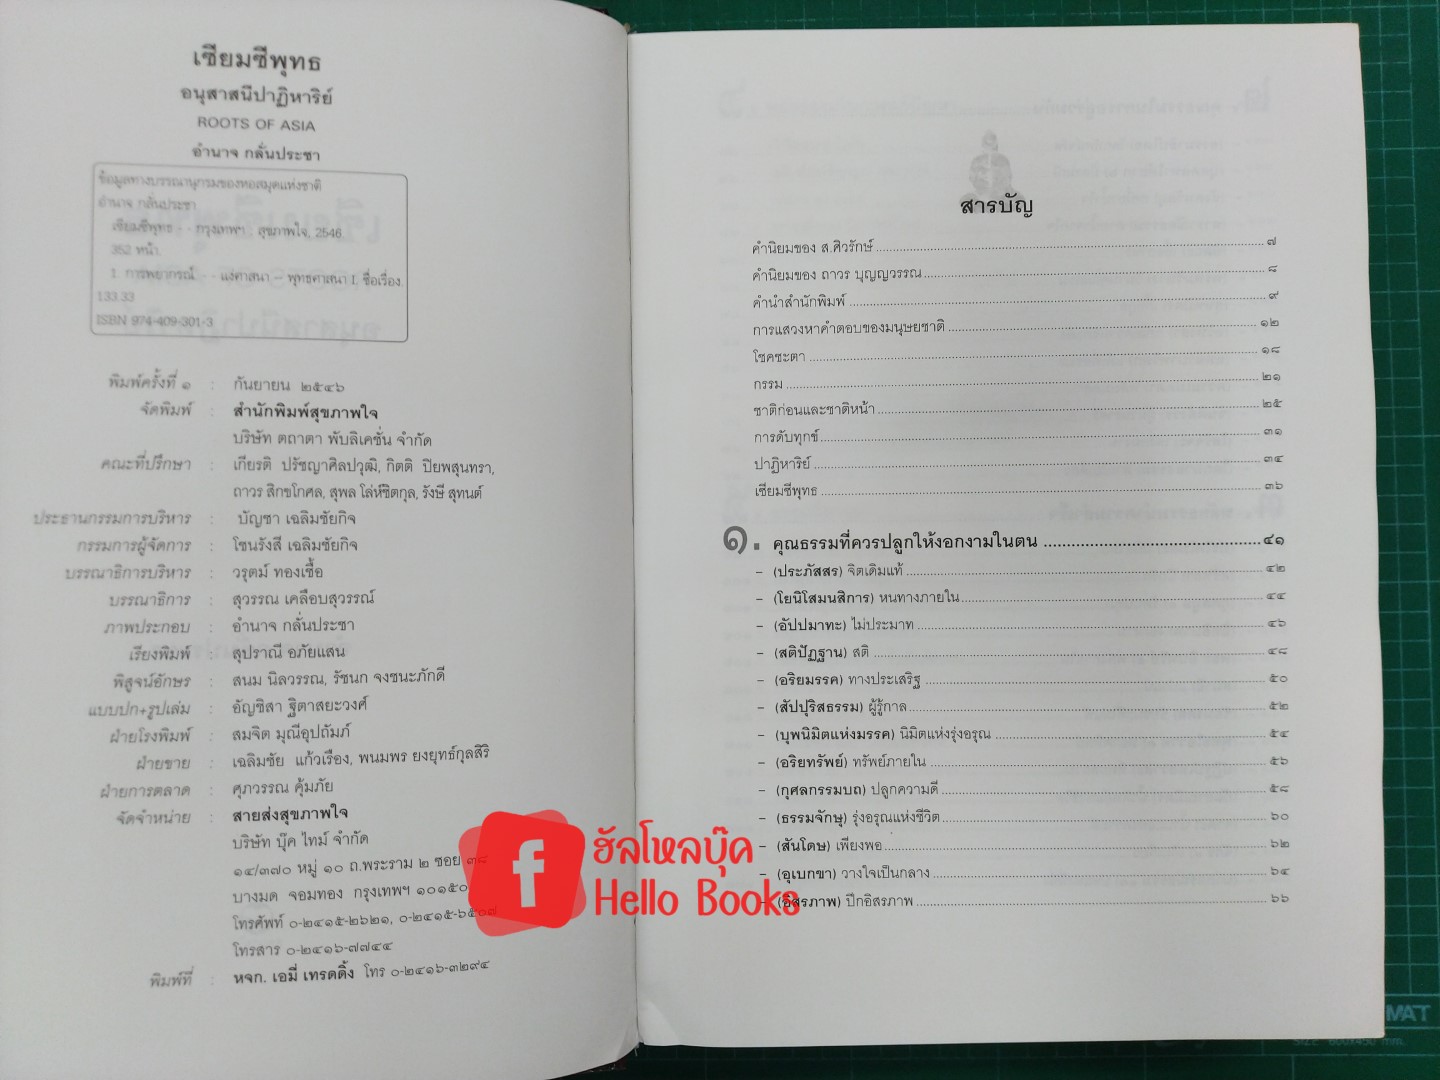 เซียมซีพุทธ
อนุสาสนีปาฏิหาริย์
ROOTS OF ASIA
อำนาจ กลั่นประชา
ข้อมูลทางบรรณานุกรมของหอสมุดแห่งชาติ
อำนาจ กลั่นประชา
เซียมซีพุทธ - - กรุงเทพฯ : สุขภาพใจ, 2546.
352 หน้า.
1. การพยากรณ์. - - แง่ศาสนา – พุทธศาสนา I. ชื่อเรื่อง.
133.33
ISBN 974-409-301-3
พิมพ์ครั้งที่ ๑ : กันยายน ๒๕๔๖
จัดพิมพ์ : สำนักพิมพ์สุขภาพใจ
บริษัท ตถาตา พับลิเคชั่น จำกัด
คณะที่ปรึกษา : เกียรติ ปรัชญาศิลปวุฒิ, กิตติ ปิยพสุนทรา,
ถาวร สิกขโกศล, สุพล โล่ห์ชิตกุล, รังษี สุทนต์
ประธานกรรมการบริหาร : บัญชา เฉลิมชัยกิจ
กรรมการผู้จัดการ : โชนรังสี เฉลิมชัยกิจ
บรรณาธิการบริหาร : วรุตม์ ทองเชื้อ
บรรณาธิการ : สุวรรณ เคลือบสุวรรณ์
ภาพประกอบ : อำนาจ กลั่นประชา
เรียงพิมพ์ : สุปราณี อภัยแสน
พิสูจน์อักษร : สนม นิลวรรณ, รัชนก จงชนะภักดี
แบบปก+รูปเล่ม : อัญชิสา ฐิตาสยะวงศ์
ฝ่ายโรงพิมพ์ : สมจิต มุณีอุปถัมภ์
ฝ่ายขาย : เฉลิมชัย แก้วเรือง, พนมพร ยงยุทธ์กุลสิริ
ฝ่ายการตลาด : ศุภวรรณ คุ้มภัย
จัดจำหน่าย : สายส่งสุขภาพใจ
บริษัท บุ๊ค ไทม์ จำกัด
๑๔/๓๗๐ หมู่ ๑๐ ถ.พระราม ๒ ซอย ๓๘
บางมด จอมทอง กรุงเทพฯ ๑๐๑๕๐
โทรศัพท์ ๐-๒๔๑๕-๒๖๒๑, ๐-๒๔๑๕-๖๕๐๗
โทรสาร ๐-๒๔๑๖-๗๗๔๔
พิมพ์ที่ : หจก. เอมี่ เทรดดิ้ง โทร ๐-๒๔๑๖-๓๒๙๔
สารบัญ
คำนิยมของ ส.ศิวรักษ์ ๗
คำนิยมของ ถาวร บุญญวรรณ ๘
คำนำสำนักพิมพ์ ๙
การแสวงหาคำตอบของมนุษยชาติ ๑๒
โชคชะตา ๑๘
กรรม ๒๑
ชาติก่อนและชาติหน้า ๒๕
การดับทุกข์ ๓๑
ปาฏิหาริย์ ๓๔
เซียมซีพุทธ ๓๖
๑. คุณธรรมที่ควรปลูกให้งอกงามในตน ๔๑
– (ประภัสสร) จิตเดิมแท้ ๔๒
– (โยนิโสมนสิการ) หนทางภายใน ๔๔
– (อัปปมาทะ) ไม่ประมาท ๔๖
– (สติปัฏฐาน) สติ ๔๘
– (อริยมรรค) ทางประเสริฐ ๕๐
– (สัปปุริสธรรม) ผู้รู้กาล ๕๒
– (บุพนิมิตแห่งมรรค) นิมิตแห่งรุ่งอรุณ ๕๔
– (อริยทรัพย์) ทรัพย์ภายใน ๕๖
– (กุศลกรรมบถ) ปลูกความดี ๕๘
– (ธรรมจักษุ) รุ่งอรุณแห่งชีวิต ๖๐
– (สันโดษ) เพียงพอ ๖๒
– (อุเบกขา) วางใจเป็นกลาง ๖๔
– (อิสรภาพ) ปีกอิสรภาพ ๖๖
f ฮัลโหลบุ๊ค
Hello Books
TAM
SIZE 600X450 mm.